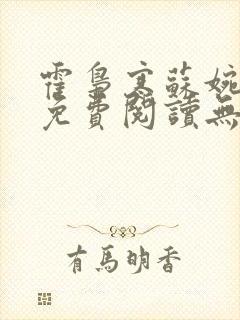 霍梟寒蘇婉
免費閱讀無
有馬明香